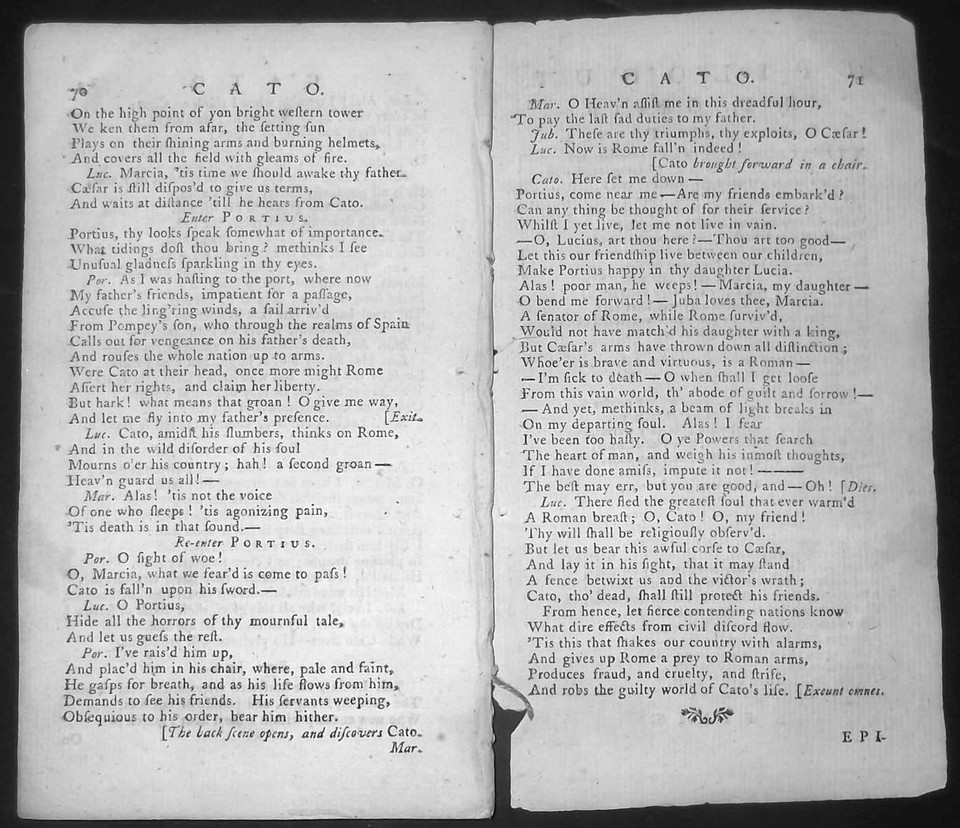 70 CATO.
On the high point of yon bright weſtern tower
We ken them from afar, the ſetting ſun
Plays on their ſhining arms and burning helmets,
And covers all the field with gleams of fire.
Luc. Marcia, 'tis time we ſhould awake thy father.
Cæſar is ſtill diſpos'd to give us terms,
And waits at diſtance 'till he hears from Cato.
Enter PORTIUS.
Portius, thy looks ſpeak ſomewhat of importance.
What tidings doſt thou bring? methinks I ſee
Unuſual gladneſs ſparkling in thy eyes.
Por. As I was haſting to the port, where now
My father's friends, impatient for a paſſage,
Accuſe the ling'ring winds, a ſail arriv'd
From Pompey's ſon, who through the realms of Spain
Calls out for vengeance on his father's death,
And rouſes the whole nation up to arms.
Were Cato at their head, once more might Rome
Aſſert her rights, and claim her liberty.
But hark! what means that groan! O give me way,
And let me fly into my father's preſence. [Exit.
Luc. Cato, amidſt his ſlumbers, thinks on Rome,
And in the wild diſorder of his ſoul
Mourns o'er his country; hah! a ſecond groan—
Heav'n guard us all!—
Mar. Alas! 'tis not the voice
Of one who ſleeps! 'tis agonizing pain,
'Tis death is in that ſound.—
Re-enter PORTIUS.
Por. O ſight of woe!
O, Marcia, what we fear'd is come to paſs!
Cato is fall'n upon his ſword.—
Luc. O Portius,
Hide all the horrors of thy mournful tale,
And let us gueſs the reſt.
Por. I've rais'd him up,
And plac'd him in his chair, where, pale and faint,
He gaſps for breath, and as his life flows from him,
Demands to ſee his friends. His ſervants weeping,
Obſequious to his order, bear him hither.
[The back ſcene opens, and diſcovers Cato.
Mar.
CATO. 71
Mar. O Heav'n aſſiſt me in this dreadful hour,
To pay the laſt ſad duties to my father.
Jub. Theſe are thy triumphs, thy exploits, O Cæſar!
Luc. Now is Rome fall'n indeed!
[Cato brought forward in a chair.
Cato. Here ſet me down—
Portius, come near me—Are my friends embark'd?
Can any thing be thought of for their ſervice?
Whilſt I yet live, let me not live in vain.
—O, Lucius, art thou here?—Thou art too good—
Let this our friendſhip live between our children,
Make Portius happy in thy daughter Lucia.
Alas! poor man, he weeps!—Marcia, my daughter—
O bend me forward!—Juba loves thee, Marcia.
A ſenator of Rome, while Rome ſurviv'd,
Would not have match'd his daughter with a king,
But Cæſar's arms have thrown down all diſtinction;
Whoe'er is brave and virtuous, is a Roman—
—I'm ſick to death—O when ſhall I get looſe
From this vain world, th' abode of guilt and ſorrow!—
—And yet, methinks, a beam of light breaks in
On my departing ſoul. Alas! I fear
I've been too haſty. O ye Powers that ſearch
The heart of man, and weigh his inmoſt thoughts,
If I have done amiſs, impute it not!———
The beſt may err, but you are good, and—Oh! [Dies.
Luc. There fled the greateſt ſoul that ever warm'd
A Roman breaſt; O, Cato! O, my friend!
Thy will ſhall be religiouſly obſerv'd.
But let us bear this awful corſe to Cæſar,
And lay it in his ſight, that it may ſtand
A fence betwixt us and the victor's wrath;
Cato, tho' dead, ſhall ſtill protect his friends.
From hence, let fierce contending nations know
What dire effects from civil diſcord flow.
'Tis this that ſhakes our country with alarms,
And gives up Rome a prey to Roman arms,
Produces fraud, and cruelty, and ſtrife,
And robs the guilty world of Cato's life. [Exeunt omnes.
EPI-